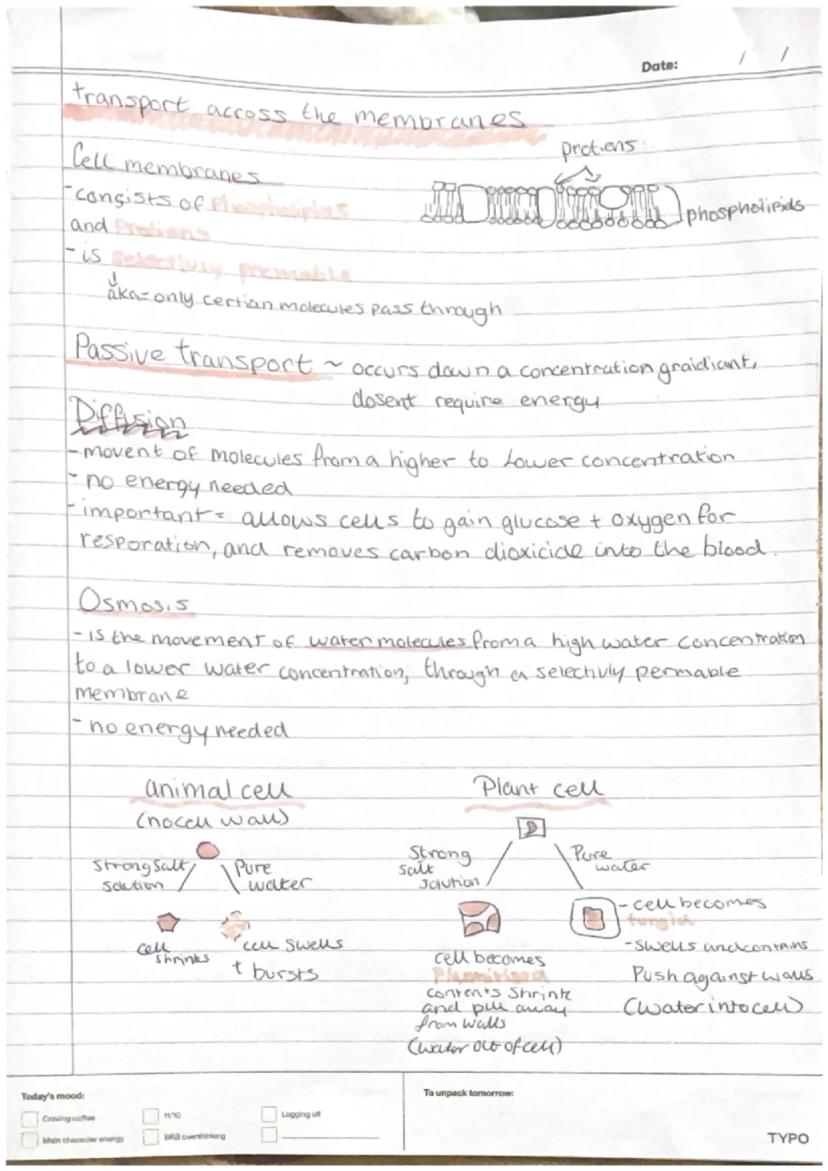 Date: / /
transport across the membranes
Cell membranes
protiens
-consists of Phospholipids
and Protiens
phospholipids
- is selectivly premable
aka= only certian molecules pass through
Passive transport ~ occurs down a concentration graidiant,
dosent require energy
Diffusion
-movent of molecules from a higher to lower concentration
- no energy needed
-important= allows cells to gain glucose + oxygen for
resporation, and removes carbon dioxicide into the blood.
Osmosis
- is the movement of water molecules from a high water concentration
to a lower water concentration, through a selectivly permable
membrane
- no energy needed
animal cell
(no cell wall)
Strong Salt
solution
Pure
water
cell
shrinks
cell swells
+ bursts
Plant cell
Strong
salt
solution
Pure
water
cell becomes
contents shrink
and pull away
from walls
(water out of cell)
- cell becomes
turgid
-swells and contains
Push against walls
(water into cell)
Today's mood:
Craving coffee
11/10
Logging off
Main character energy
BRB overthinking
To unpack tomorrow:
TYPO